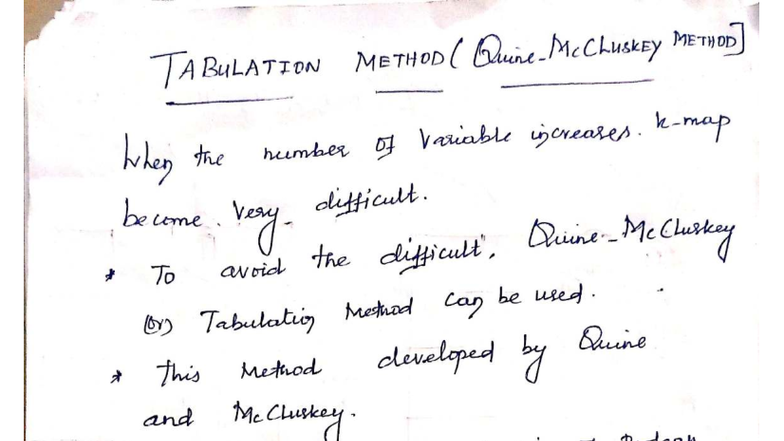 TABULATION METHOD (Quine-McCluskey METHOD]
When the number of Variable increases. k-map
become. Very difficult.
* To avoid the difficult, Quine-McCluskey
(or) Tabulation Method can be used.
* This Method developed by Quine
and McCluskey.